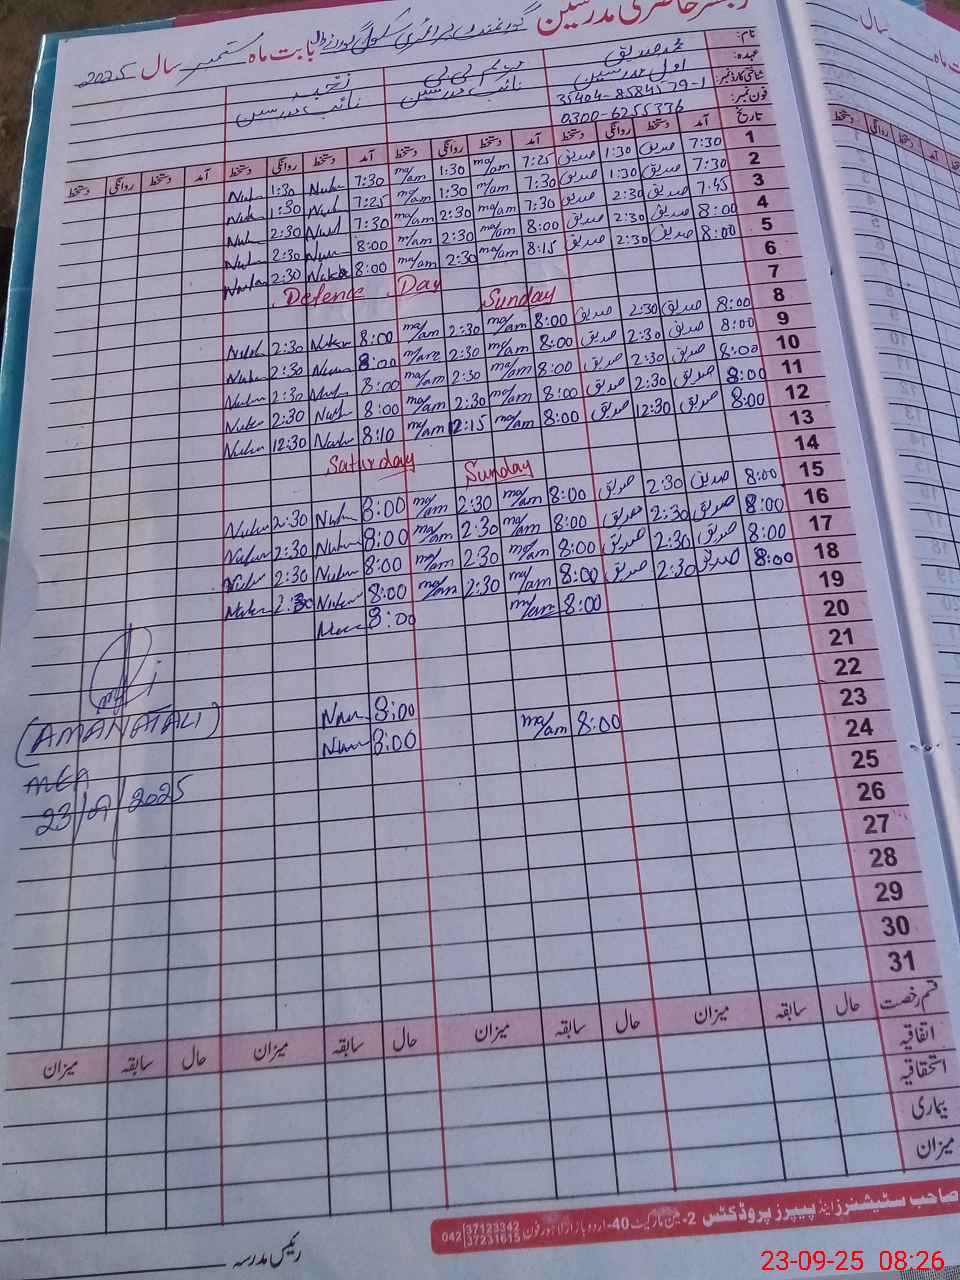 رجسٹر حاضری مدرسین گورنمنٹ پرائمری سکول بابت ماہ ستمبر سال 2025
نام: محمد صدیق مریم بی بی نجمہ
عہدہ: اول مدرسین نائب مدرسین نائب مدرسین
شناختی کارڈ نمبر: 35404-8584579-1
فون نمبر: 0300-6255336
تاریخ آمد دستخط روانگی دستخط آمد دستخط روانگی دستخط آمد دستخط روانگی دستخط آمد دستخط روانگی دستخط
1 7:30 صدیق 1:30 صدیق 7:25 mo/am 1:30 mo/am 7:30 1:30
2 7:30 صدیق 1:30 صدیق 7:30 mo/am 1:30 mo/am 7:25 1:30
3 7:45 صدیق 2:30 صدیق 7:30 mo/am 2:30 mo/am 7:30 2:30
4 8:00 صدیق 2:30 صدیق 8:00 mo/am 2:30 mo/am 8:00 2:30
5 8:00 صدیق 2:30 صدیق 8:15 mo/am 2:30 mo/am 8:00 2:30
6 Defence Day
7 Sunday
8 8:00 صدیق 2:30 صدیق 8:00 mo/am 2:30 mo/am 8:00 2:30
9 8:00 صدیق 2:30 صدیق 8:00 mo/am 2:30 8:00 2:30
10 8:00 صدیق 2:30 صدیق 8:00 mo/am 2:30 mo/am 8:00 2:30
11 8:00 صدیق 2:30 صدیق 8:00 mo/am 2:30 mo/am 8:00 2:30
12 8:00 صدیق 12:30 صدیق 8:00 mo/am 12:15 mo/am 8:10 12:30
13 Saturday
14 Sunday
15 8:00 صدیق 2:30 صدیق 8:00 mo/am 2:30 mo/am 8:00 2:30
16 8:00 صدیق 2:30 صدیق 8:00 mo/am 2:30 mo/am 8:00 2:30
17 8:00 صدیق 2:30 صدیق 8:00 mo/am 2:30 mo/am 8:00 2:30
18 8:00 صدیق 2:30 صدیق 8:00 mo/am 2:30 mo/am 8:00 2:30
19 8:00 mo/am 8:00
20
21
22
23 8:00 mo/am 8:00
24 8:00
25
26
27
28
29
30
31
(AMANATALI)
MEA
23/9/2025
قسم رخصت حال سابقہ میزان حال سابقہ میزان حال سابقہ میزان حال سابقہ میزان
اتفاقیہ
استحقاقیہ
بیماری
میزان
صاحب سٹیشنرز اینڈ پیپرز پروڈکٹس 2- مارکیٹ 40-اردو بازار لاہور فون 042 37123342 37231615
رئیس مدرسہ
سال
ماہ
دستخط روانگی دستخط آمد
23-09-25 08:26